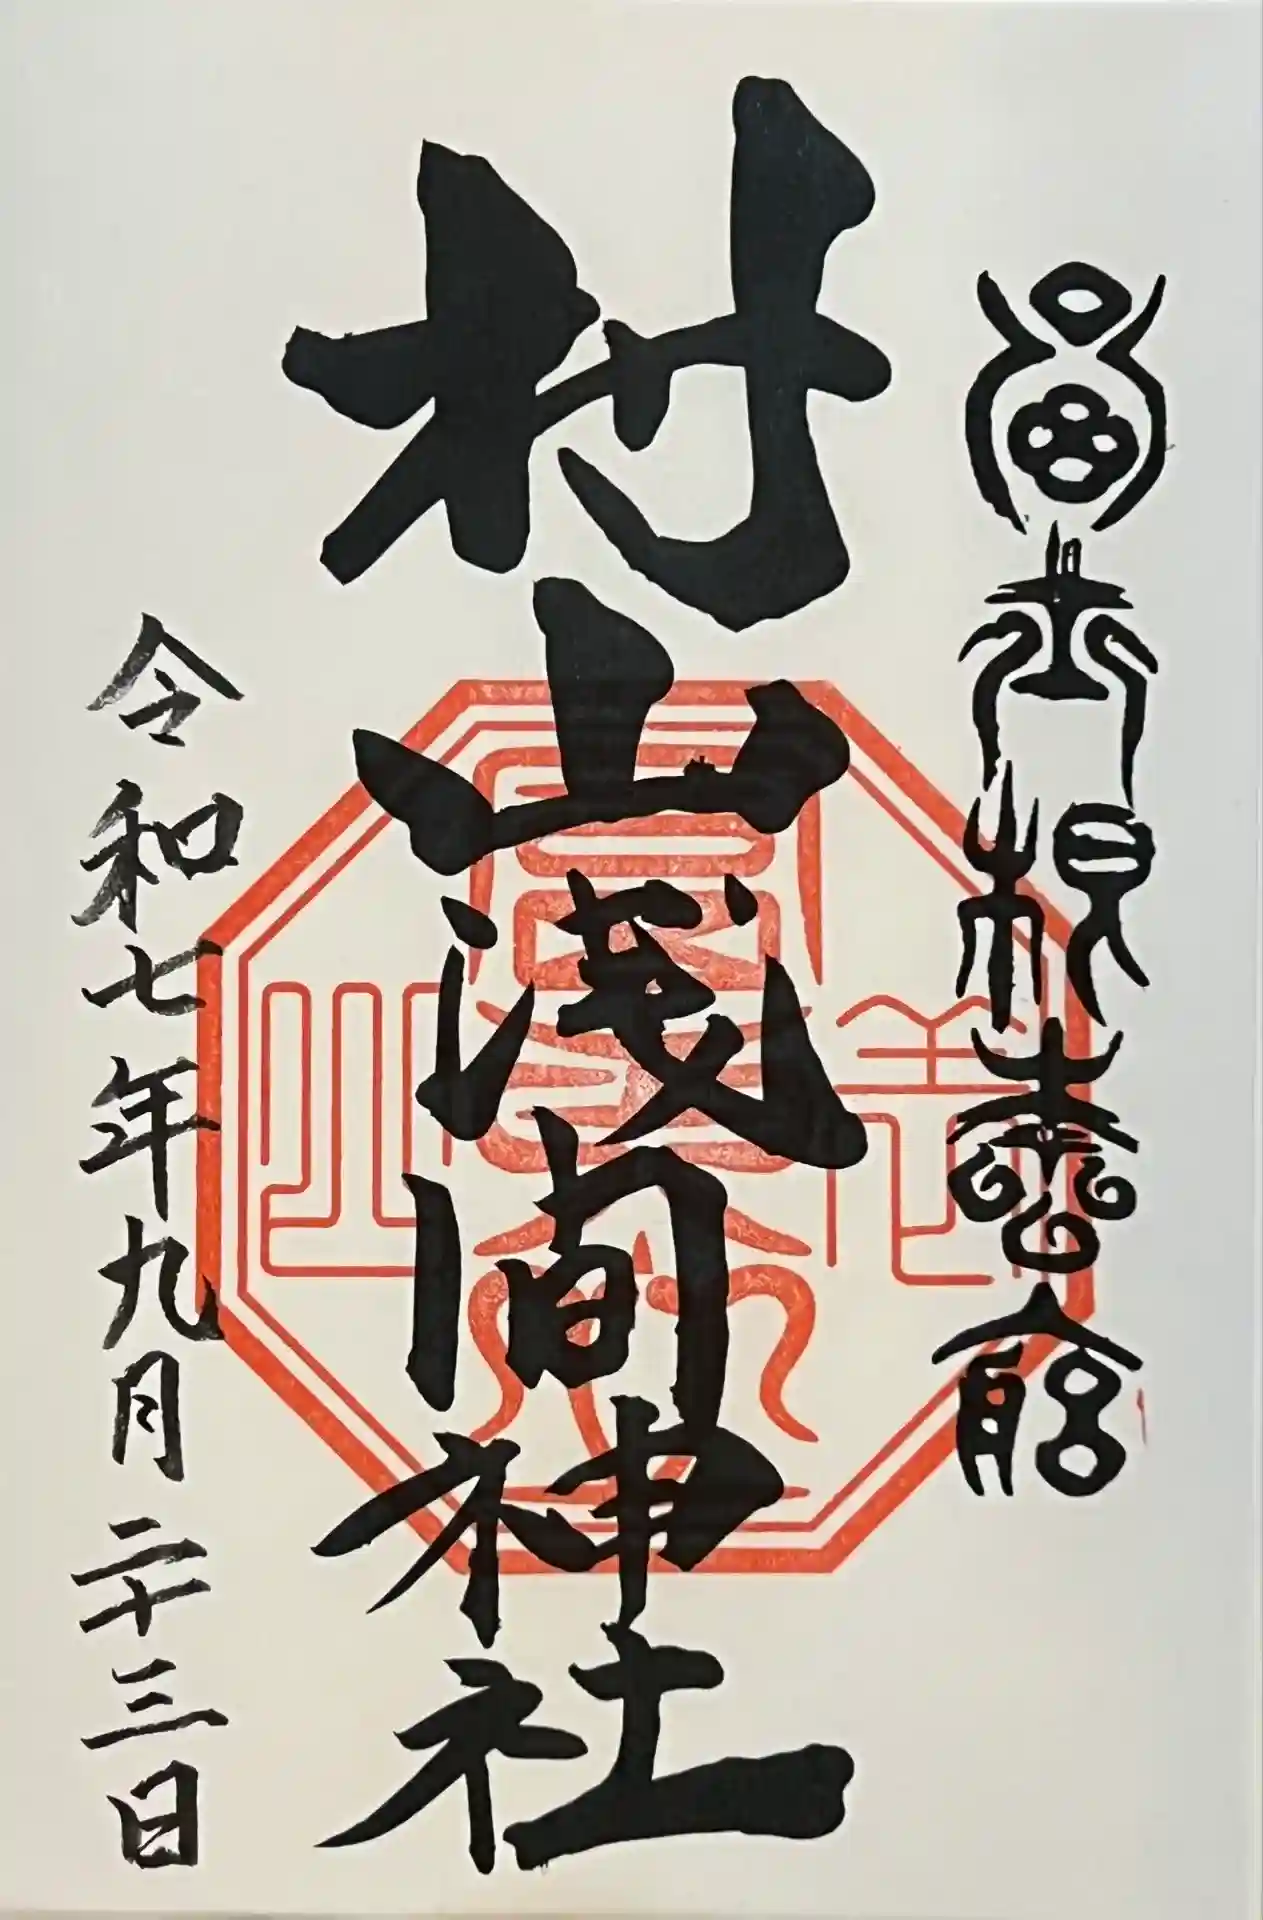 冨士根本宮
村山浅間神社
令和七年九月二十三日